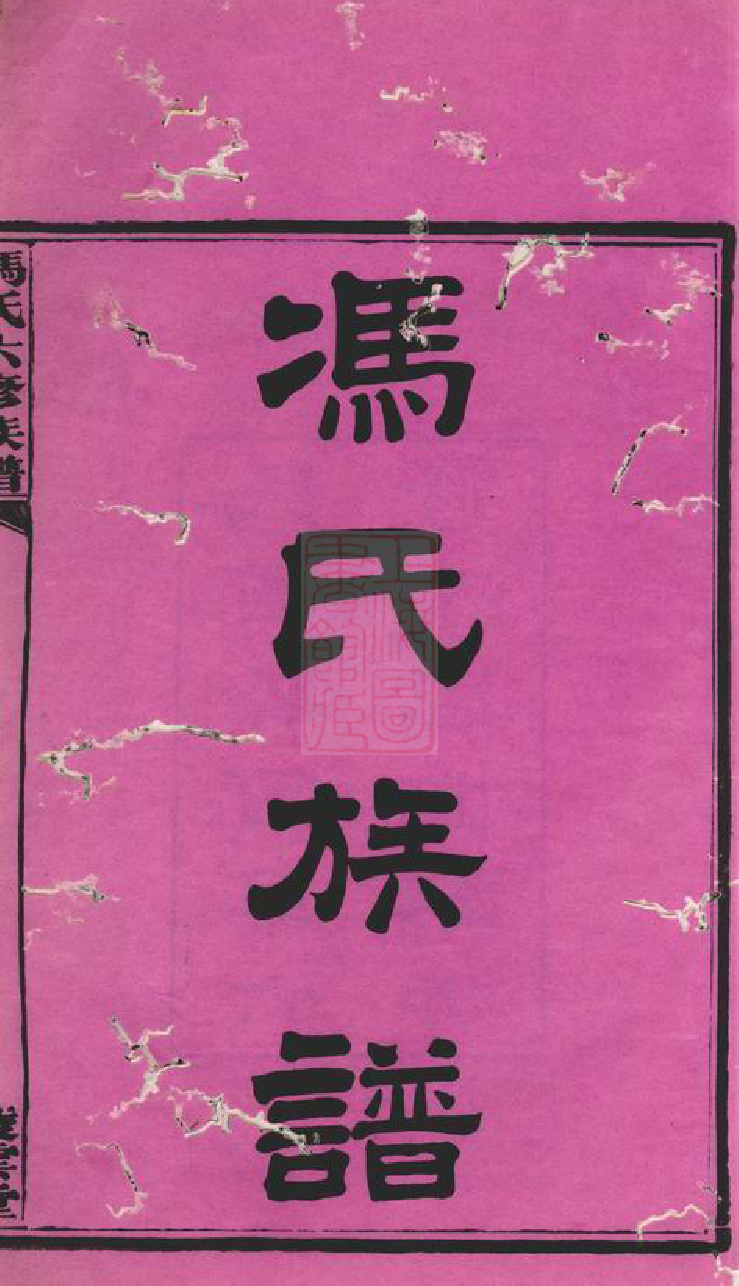 馮氏族譜
馮氏六修族譜